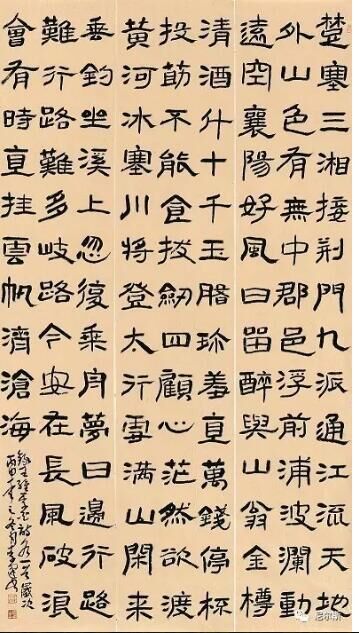 楚塞三湘接荆門九派通江流天地
外山色有無中郡邑浮前浦波瀾動
遠空襄陽好風日留醉與山翁金樽
清酒斗十千玉珍羞直萬錢停杯
投筯不能食拔劒四顧心茫然欲渡
黃河冰塞川將登太行雪满山閑来
垂釣坐溪上忽復乘舟夢日邊行路
難行路難多岐路今安在長風破浪
會有時直挂雲帆濟滄海
歲次
丙申